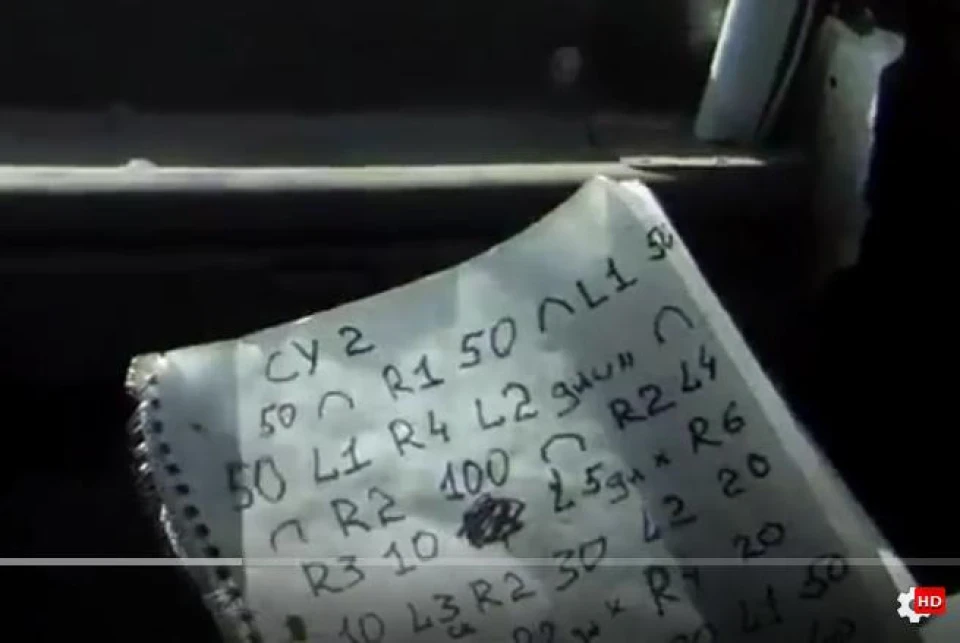 СУ 2
50 ∩ R1 50 ∩ L1 50
50 L1 R4 L2 длин ∩
∩ R2 100 ∩ R2 L4
R3 10 L5 дл R6
10 L3 R2 30 L2 20
R2 R4 20
L1 50
HD